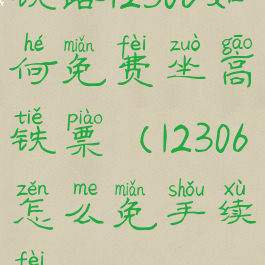 铁路12306如
hé miǎn fèi zuò gāo
何免费坐高
tiě piào
铁票(12306
zěn me miǎn shǒu xù
怎么免手续
fèi